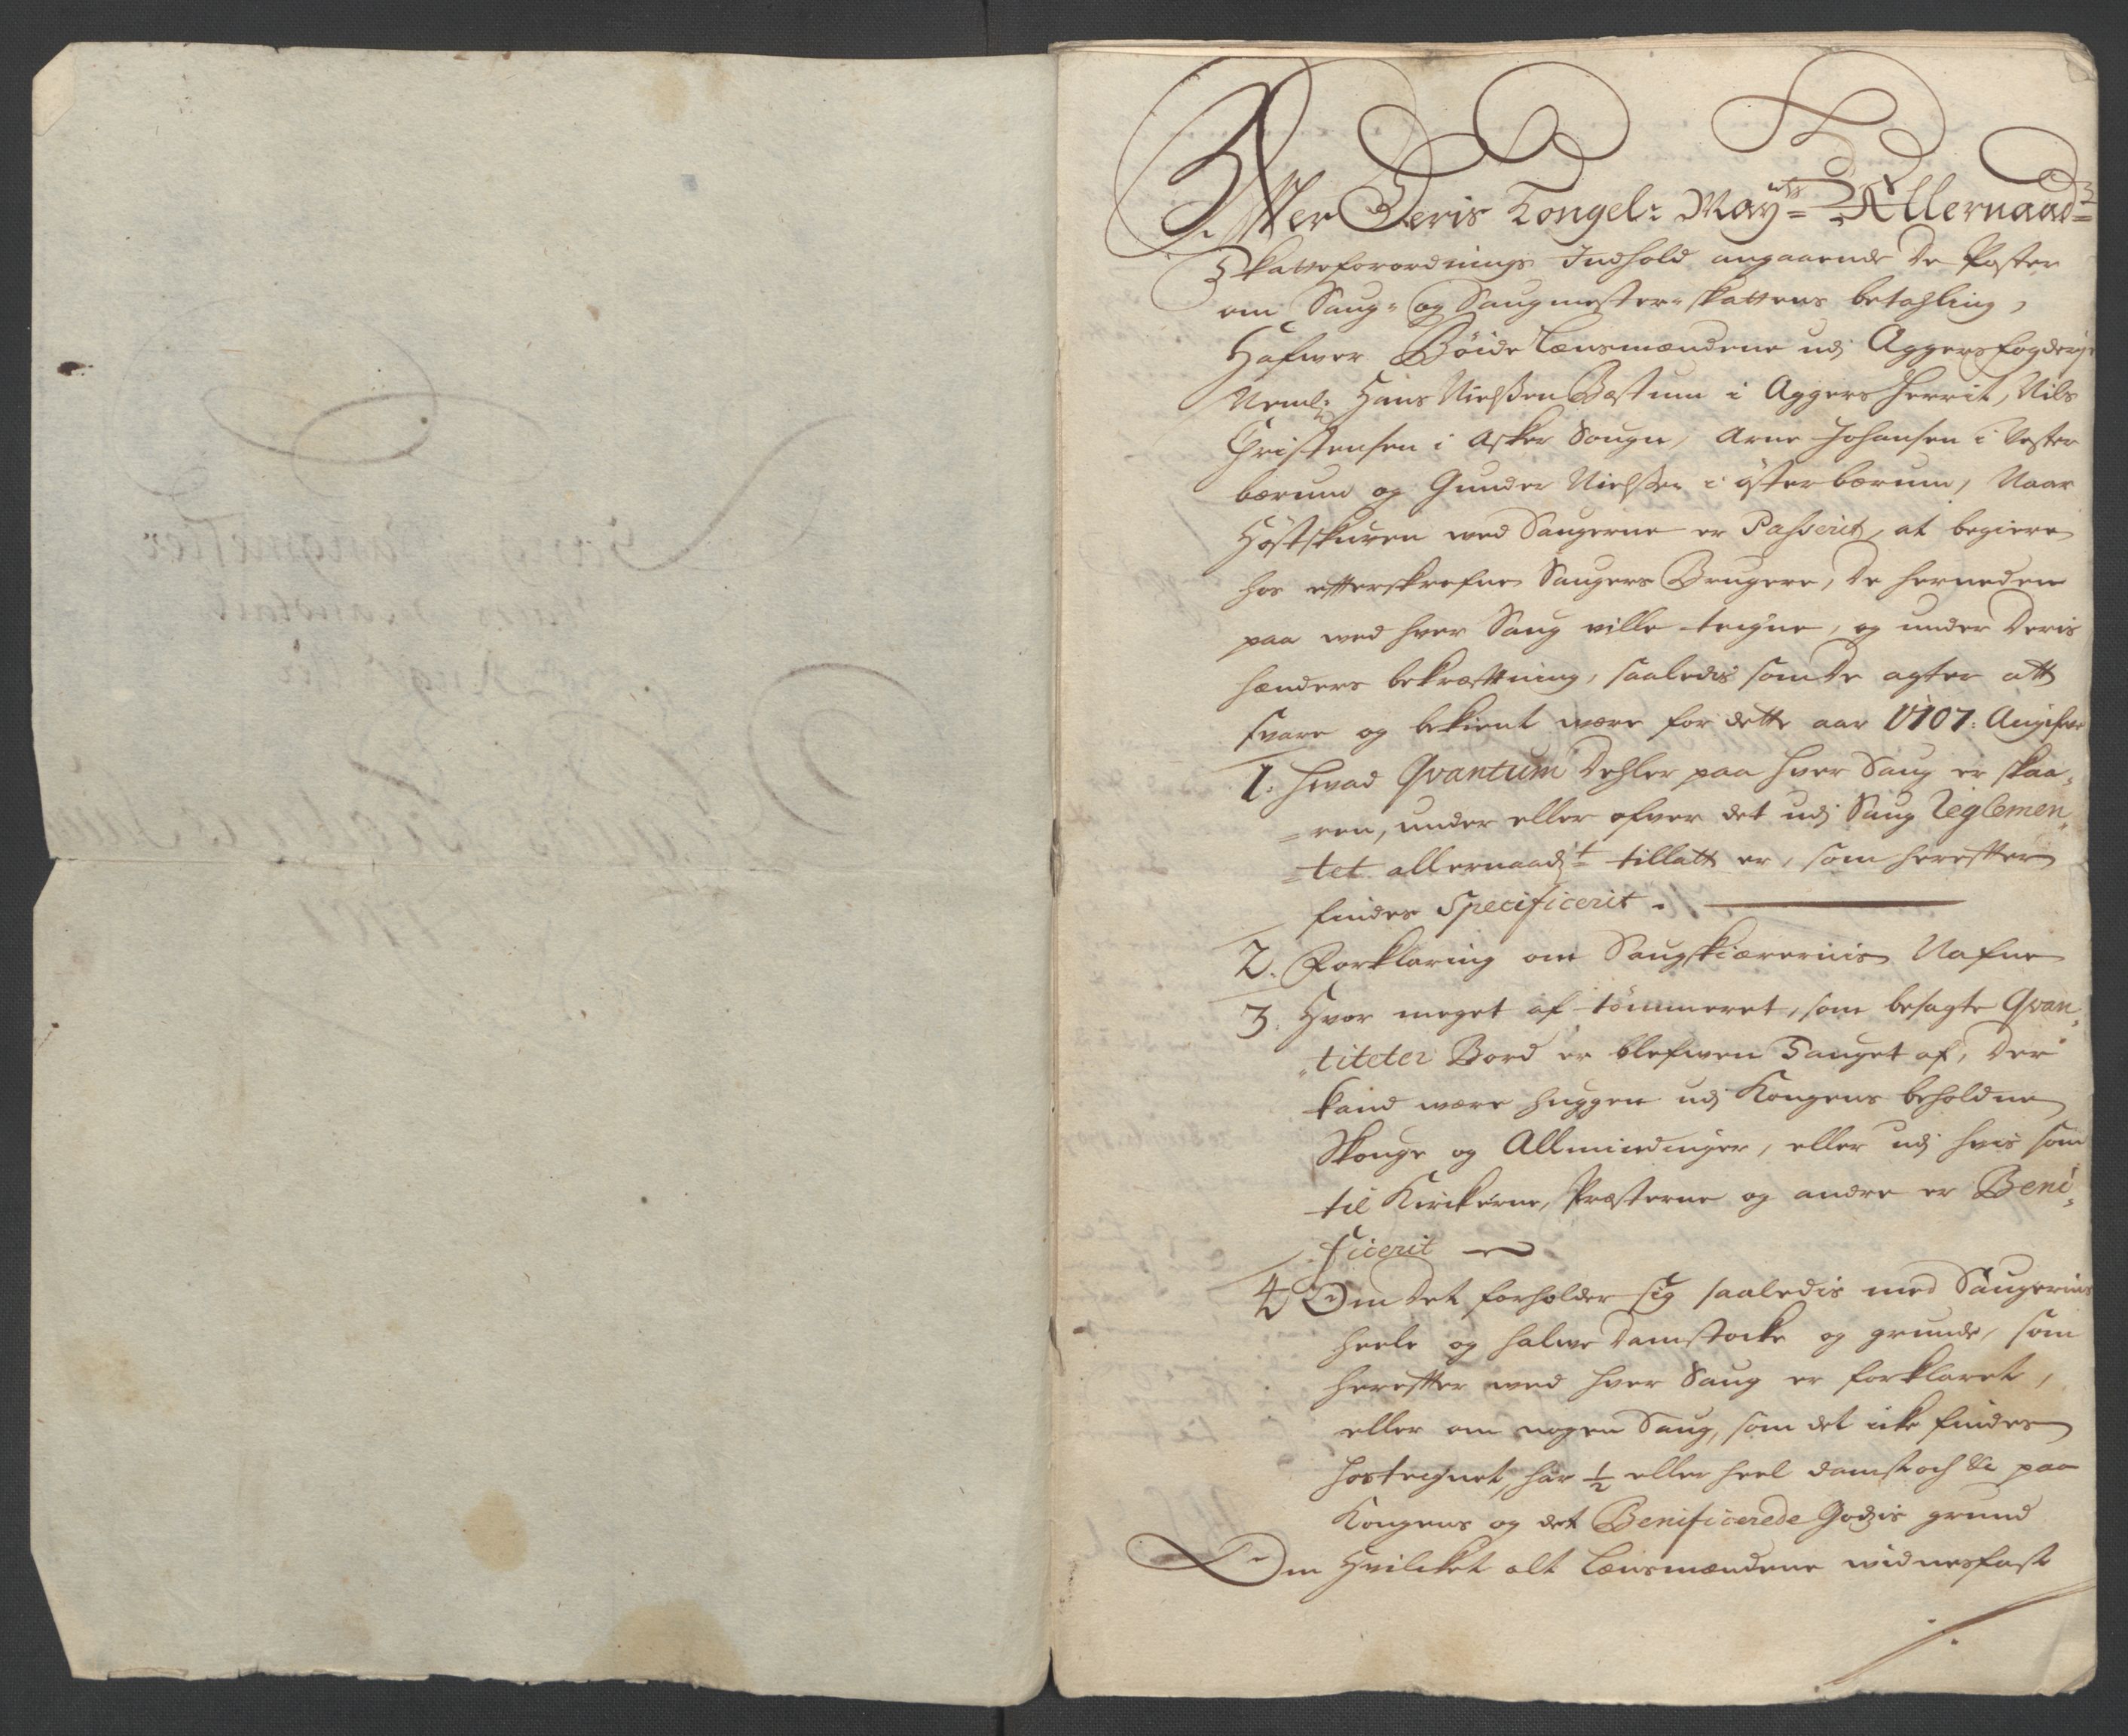 Effter Deris Kongel: May:ts Allernaad:
Skatteforordnings Indhold angaaende De Poster
om Saug- og Saugmester-skattens betahling,
Hafwer Böide Lensmændene udj Aggersfogderje
Neml: Hans Nielsen Bæstum i Aggers Herrit, Nils
Christensen i Asker Sougn, Arne Johansen i Vester
bærum og Gunder Nielsen i österbærum, Naar
Höstskuren med Saugerne er Passerit, at begiere
hos efterskrefne Saugers Brugere, De herneden
paa wed hver Saug ville teigne, og under Deris
hænders bekræfftning, saaledis som De agter att
svare og bekient være for dette aar 1707: Angifve
1. Hvad Qvantum Dehler paa hver Saug er skaa-
=ren, under eller ofver det udj Saug Reglemen-
=tet allernaad:t tillatt er, som hereffter
findes Specificerit.
2. Forklaring om Saugskiærernis Nafne
3. Hvor meget af tömmeret, som besagte Qvan-
titeter Bord er blefwen Sauget af, Der
kand være huggen udj Kongens beholdne
Skouge og Allmindinger, eller udj hvis som
til Kirckerne, Præsterne og andre er Beni-
ficerit
4 Om Det forholder sig saaledis med Saugernis
heele og halwe Damstocke og grunde, som
hereffter wed hver Saug er forklaret,
eller om nogen Saug, som det icke findes
hosteignet, har 1/2 eller heel damstoch &c paa
Kongens og det Benificerede Godzis grund
Om Hvilcket alt Lensmændene widnesfast